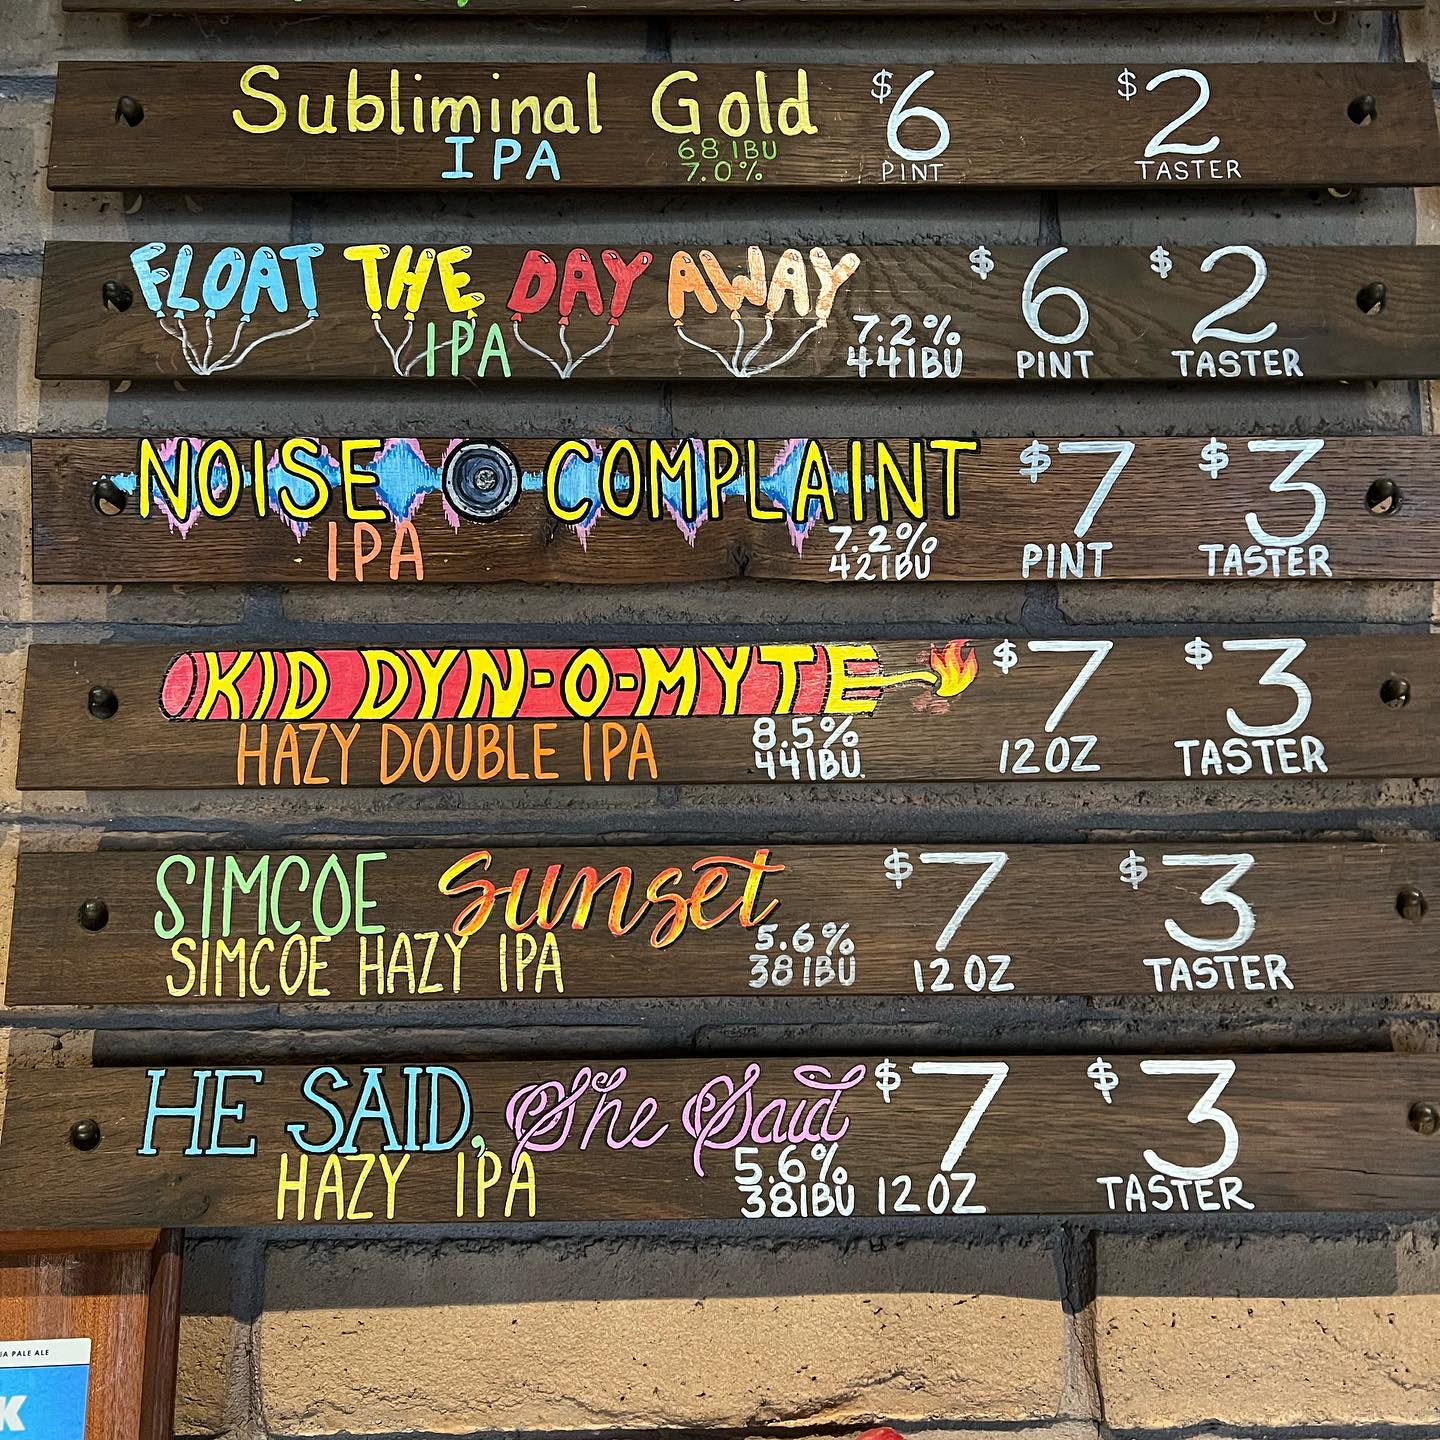 Subliminal Gold $6 $2
IPA 68 IBU PINT TASTER
7.0%
FLOAT THE DAY AWAY $6 $2
IPA 7.2%
44IBU PINT TASTER
NOISE COMPLAINT $7 $3
IPA 7.2%
42IBU PINT TASTER
KID DYN-O-MYTE $7 $3
HAZY DOUBLE IPA 8.5%
44IBU 12 OZ TASTER
SIMCOE Sunset $7 $3
SIMCOE HAZY IPA 5.6%
38 IBU 12 OZ TASTER
HE SAID, She Said $7 $3
HAZY IPA 5.6%
38IBU 12 OZ TASTER
PALE ALE
K